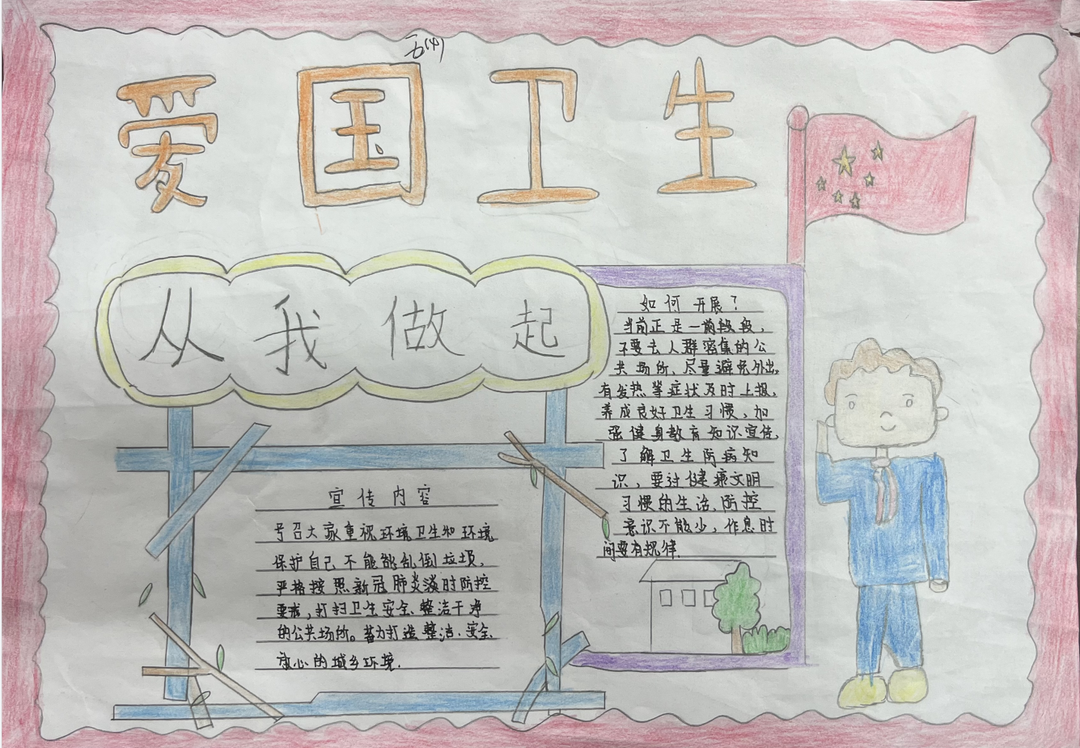 五(4)
爱国卫生
从我做起
如何开展？
当前正是一前段段，
不要去人群密集的公
共场所、尽量避免外出，
有发热等症状及时上报，
养成良好卫生习惯，加
强健身教育知识宣传，
了解卫生防病知
识，要讨健康文明
习惯的生活，防控
意识不能少，作息时
间要有规律
宣传内容
号召大家重视环境卫生和环境
保护自己不能能乱倒垃圾，
严格按照新冠肺炎 时防控
要 ，打扫卫生安全、整洁干净
的公共场所。 力打造整洁、安全、
放心的城乡环境．